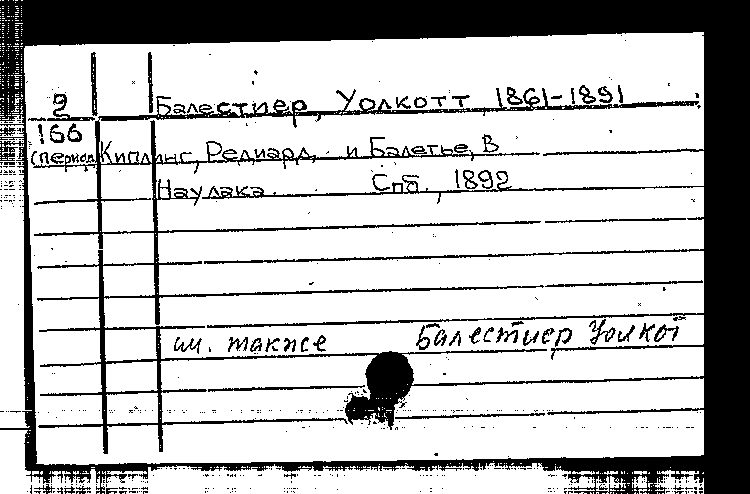 9 Балестиер, Уолкотт, 1861-1891
166
(период) Киплинг, Редиард, и Балетье, В
Наулака. Спб., 1892
см. также Балестиер Уолкот